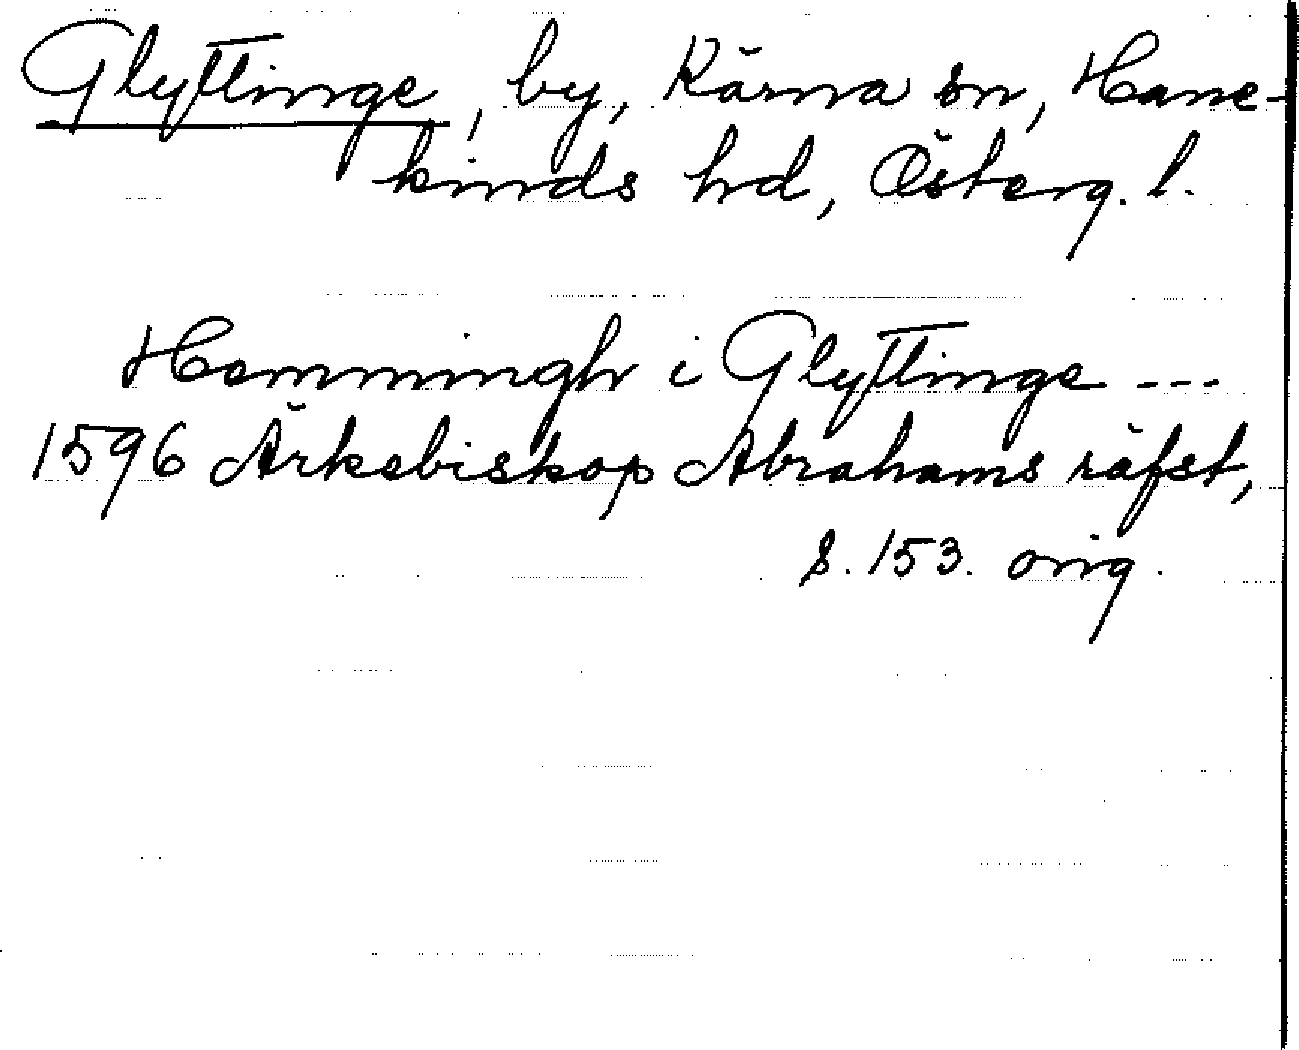 Glyttinge, by, Kärna sn, Hane-
kinds hd, Österg. l.
Hemmingh i Glyttinge ---
1596 Ärkebiskop Abrahams räfst,
s. 153. orig.